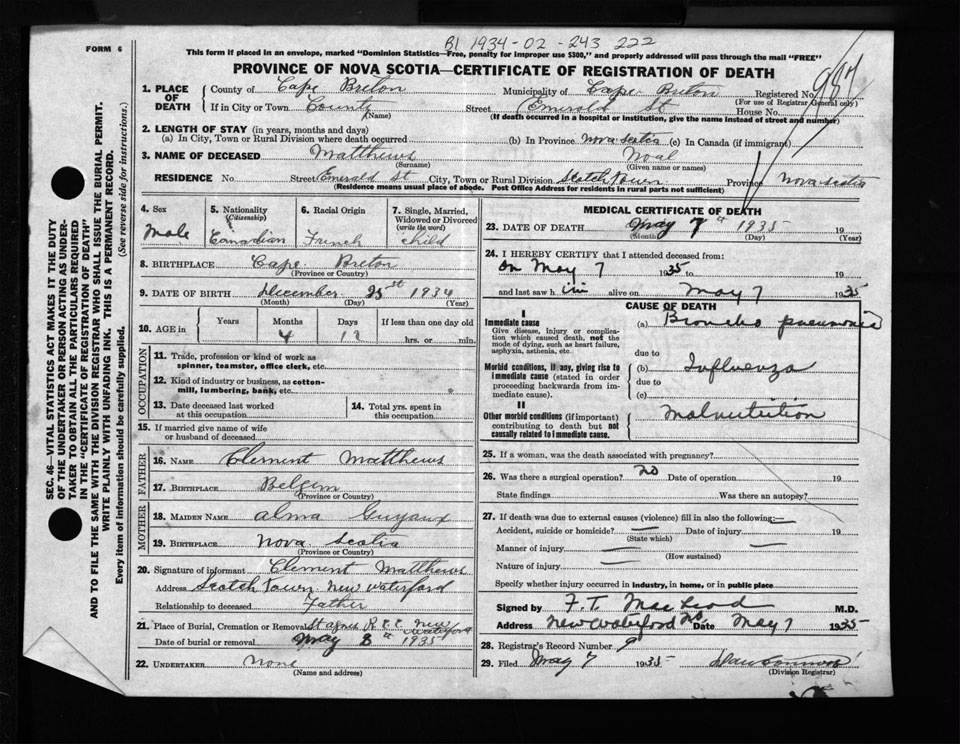 B1 1934-02-243 222
FORM 6
This form if placed in an envelope, marked "Dominion Statistics—Free, penalty for improper use $300," and properly addressed will pass through the mail "FREE"
PROVINCE OF NOVA SCOTIA—CERTIFICATE OF REGISTRATION OF DEATH
1. PLACE OF DEATH
County of Cape Breton Municipality of Cape Breton Registered No.
(For use of Registrar General only)
If in City or Town County Street Emerald St House No.
(Name) (If death occurred in a hospital or institution, give the name instead of street and number)
2. LENGTH OF STAY (in years, months and days)
(a) In City, Town or Rural Division where death occurred (b) In Province Nova Scotia (c) In Canada (if immigrant)
3. NAME OF DECEASED Matthews Noal
(Surname) (Given name or names)
RESIDENCE No. Street Emerald St City, Town or Rural Division Scotch Town Province Nova Scotia
(Residence means usual place of abode. Post Office Address for residents in rural parts not sufficient)
4. Sex Male
5. Nationality (Citizenship) Canadian
6. Racial Origin French
7. Single, Married, Widowed or Divorced (write the word) child
8. BIRTHPLACE Cape Breton
(Province or Country)
9. DATE OF BIRTH December 25st 1934
(Month) (Day) (Year)
10. AGE in Years Months 4 Days 12 If less than one day old
hrs. or min.
OCCUPATION
11. Trade, profession or kind of work as
spinner, teamster, office clerk, etc.
12. Kind of industry or business, as cotton-
mill, lumbering, bank, etc.
13. Date deceased last worked
at this occupation
14. Total yrs. spent in
this occupation
15. If married give name of wife
or husband of deceased
FATHER
16. NAME Clement Matthews
17. BIRTHPLACE Belgem
(Province or Country)
MOTHER
18. MAIDEN NAME Alma Guyaux
19. BIRTHPLACE Nova Scotia
(Province or Country)
20. Signature of informant Clement Matthews
Address Scotch Town New Waterford
Relationship to deceased Father
21. Place of Burial, Cremation or Removal St Agnes R.C.C. New Waterford
Date of burial or removal May 8th 1935
22. UNDERTAKER none
(Name and address)
MEDICAL CERTIFICATE OF DEATH
23. DATE OF DEATH May 7th 1935 19
(Month) (Day) (Year)
24. I HEREBY CERTIFY that I attended deceased from:
On May 7 1935 to 19
and last saw him alive on May 7 1935
CAUSE OF DEATH
I
Immediate cause
Give disease, injury or complica-
tion which caused death, not the
mode of dying, such as heart failure,
asphyxia, asthenia, etc.
(a) Broncho pneumonia
due to
Morbid conditions, if any, giving rise to
immediate cause (stated in order
proceeding backwards from im-
mediate cause).
(b) Influenza
due to
(c)
II
Other morbid conditions (if important)
contributing to death but not
causally related to immediate cause.
Malnutrition
25. If a woman, was the death associated with pregnancy?
26. Was there a surgical operation? No Date of operation 19
State findings Was there an autopsy?
27. If death was due to external causes (violence) fill in also the following:—
Accident, suicide or homicide? Date of injury 19
(State which)
Manner of injury
(How sustained)
Nature of injury
Specify whether injury occurred in industry, in home, or in public place
Signed by F. T. MacLeod M.D.
Address New Waterford NS Date May 7 1935
28. Registrar's Record Number 9
29. Filed May 7 1935
(Division Registrar)
SEC. 46—VITAL STATISTICS ACT MAKES IT THE DUTY
OF THE UNDERTAKER OR PERSON ACTING AS UNDER-
TAKER TO OBTAIN ALL THE PARTICULARS REQUIRED
IN THE "CERTIFICATE OF REGISTRATION OF DEATH"
AND TO FILE THE SAME WITH THE DIVISION REGISTRAR WHO SHALL ISSUE THE BURIAL PERMIT.
WRITE PLAINLY WITH UNFADING INK. THIS IS A PERMANENT RECORD.
Every item of information should be carefully supplied. (See reverse side for instructions.)